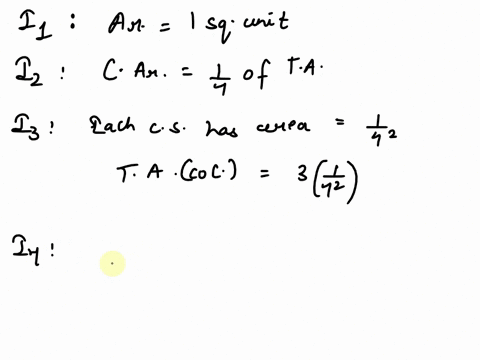 I1 : Ar. = 1 sq. unit
I2 : C. Ar. = 1/4 of T.A.
I3 : Each c.s. has area = 1/4²
T.A. (col.) = 3(1/4²)
I4 :